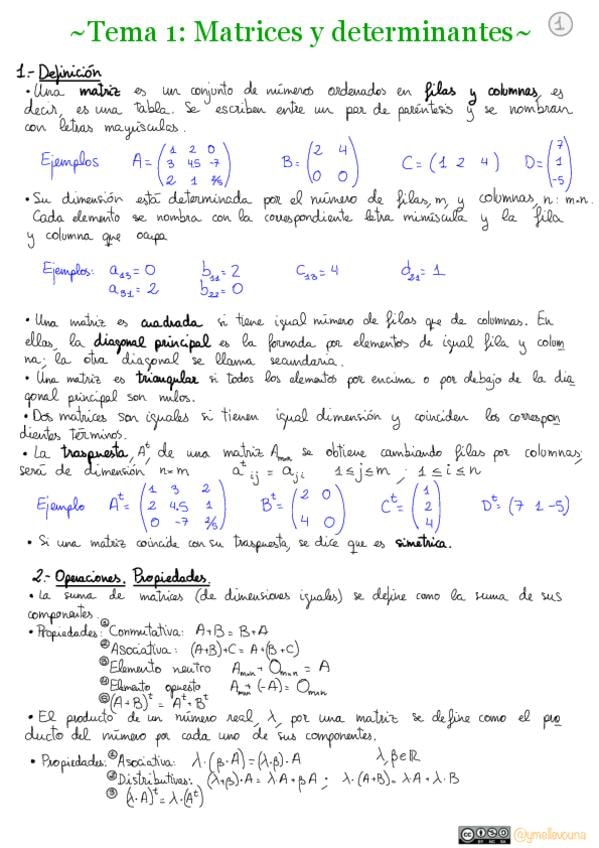 ~Tema 1: Matrices y determinantes~ 1
1.- Definición
• Una matriz es un conjunto de números ordenados en filas y columnas, es
decir, es una tabla. Se escriben entre un par de paréntesis y se nombran
con letras mayúsculas.
Ejemplos A = (1 2 0 / 3 4.5 -7 / 2 1 2/5) B = (2 4 / 0 0) C = (1 2 4) D = (7 / 1 / -5)
• Su dimensión está determinada por el número de filas, m, y columnas, n: m×n.
Cada elemento se nombra con la correspondiente letra minúscula y la fila
y columna que ocupa
Ejemplos: a₁₃ = 0 b₁₁ = 2 c₁₃ = 4 d₂₁ = 1
a₃₁ = 2 b₂₂ = 0
• Una matriz es cuadrada si tiene igual número de filas que de columnas. En
ellas, la diagonal principal es la formada por elementos de igual fila y colum
na; la otra diagonal se llama secundaria.
• Una matriz es triangular si todos los elementos por encima o por debajo de la dia
gonal principal son nulos.
• Dos matrices son iguales si tienen igual dimensión y coinciden los correspon
dientes términos.
• La traspuesta, Aᵗ, de una matriz Aₘₓₙ se obtiene cambiando filas por columnas;
será de dimensión n×m aᵗ ij = a ji 1≤j≤m ; 1≤i≤n
Ejemplo Aᵗ = (1 3 2 / 2 4.5 1 / 0 -7 2/5) Bᵗ = (2 0 / 4 0) Cᵗ = (1 / 2 / 4) Dᵗ = (7 1 -5)
• Si una matriz coincide con su traspuesta, se dice que es simétrica.
2.- Operaciones. Propiedades.
• La suma de matrices (de dimensiones iguales) se define como la suma de sus
componentes.
• Propiedades: ① Conmutativa: A+B = B+A
② Asociativa: (A+B)+C = A+(B+C)
③ Elemento neutro Aₘₓₙ + Oₘₓₙ = A
④ Elemento opuesto Aₘₓₙ + (-A) = Oₘₓₙ
⑤ (A+B)ᵗ = Aᵗ + Bᵗ
• El producto de un número real, λ, por una matriz se define como el pro
ducto del número por cada uno de sus componentes.
• Propiedades: ① Asociativa: λ·(β·A) = (λ·β)·A λ, β ∈ ℝ
② Distributivas: (λ+β)·A = λ·A + β·A ; λ·(A+B) = λ·A + λ·B
③ (λ·A)ᵗ = λ·(Aᵗ)
cc BY NC SA @ymellevouna